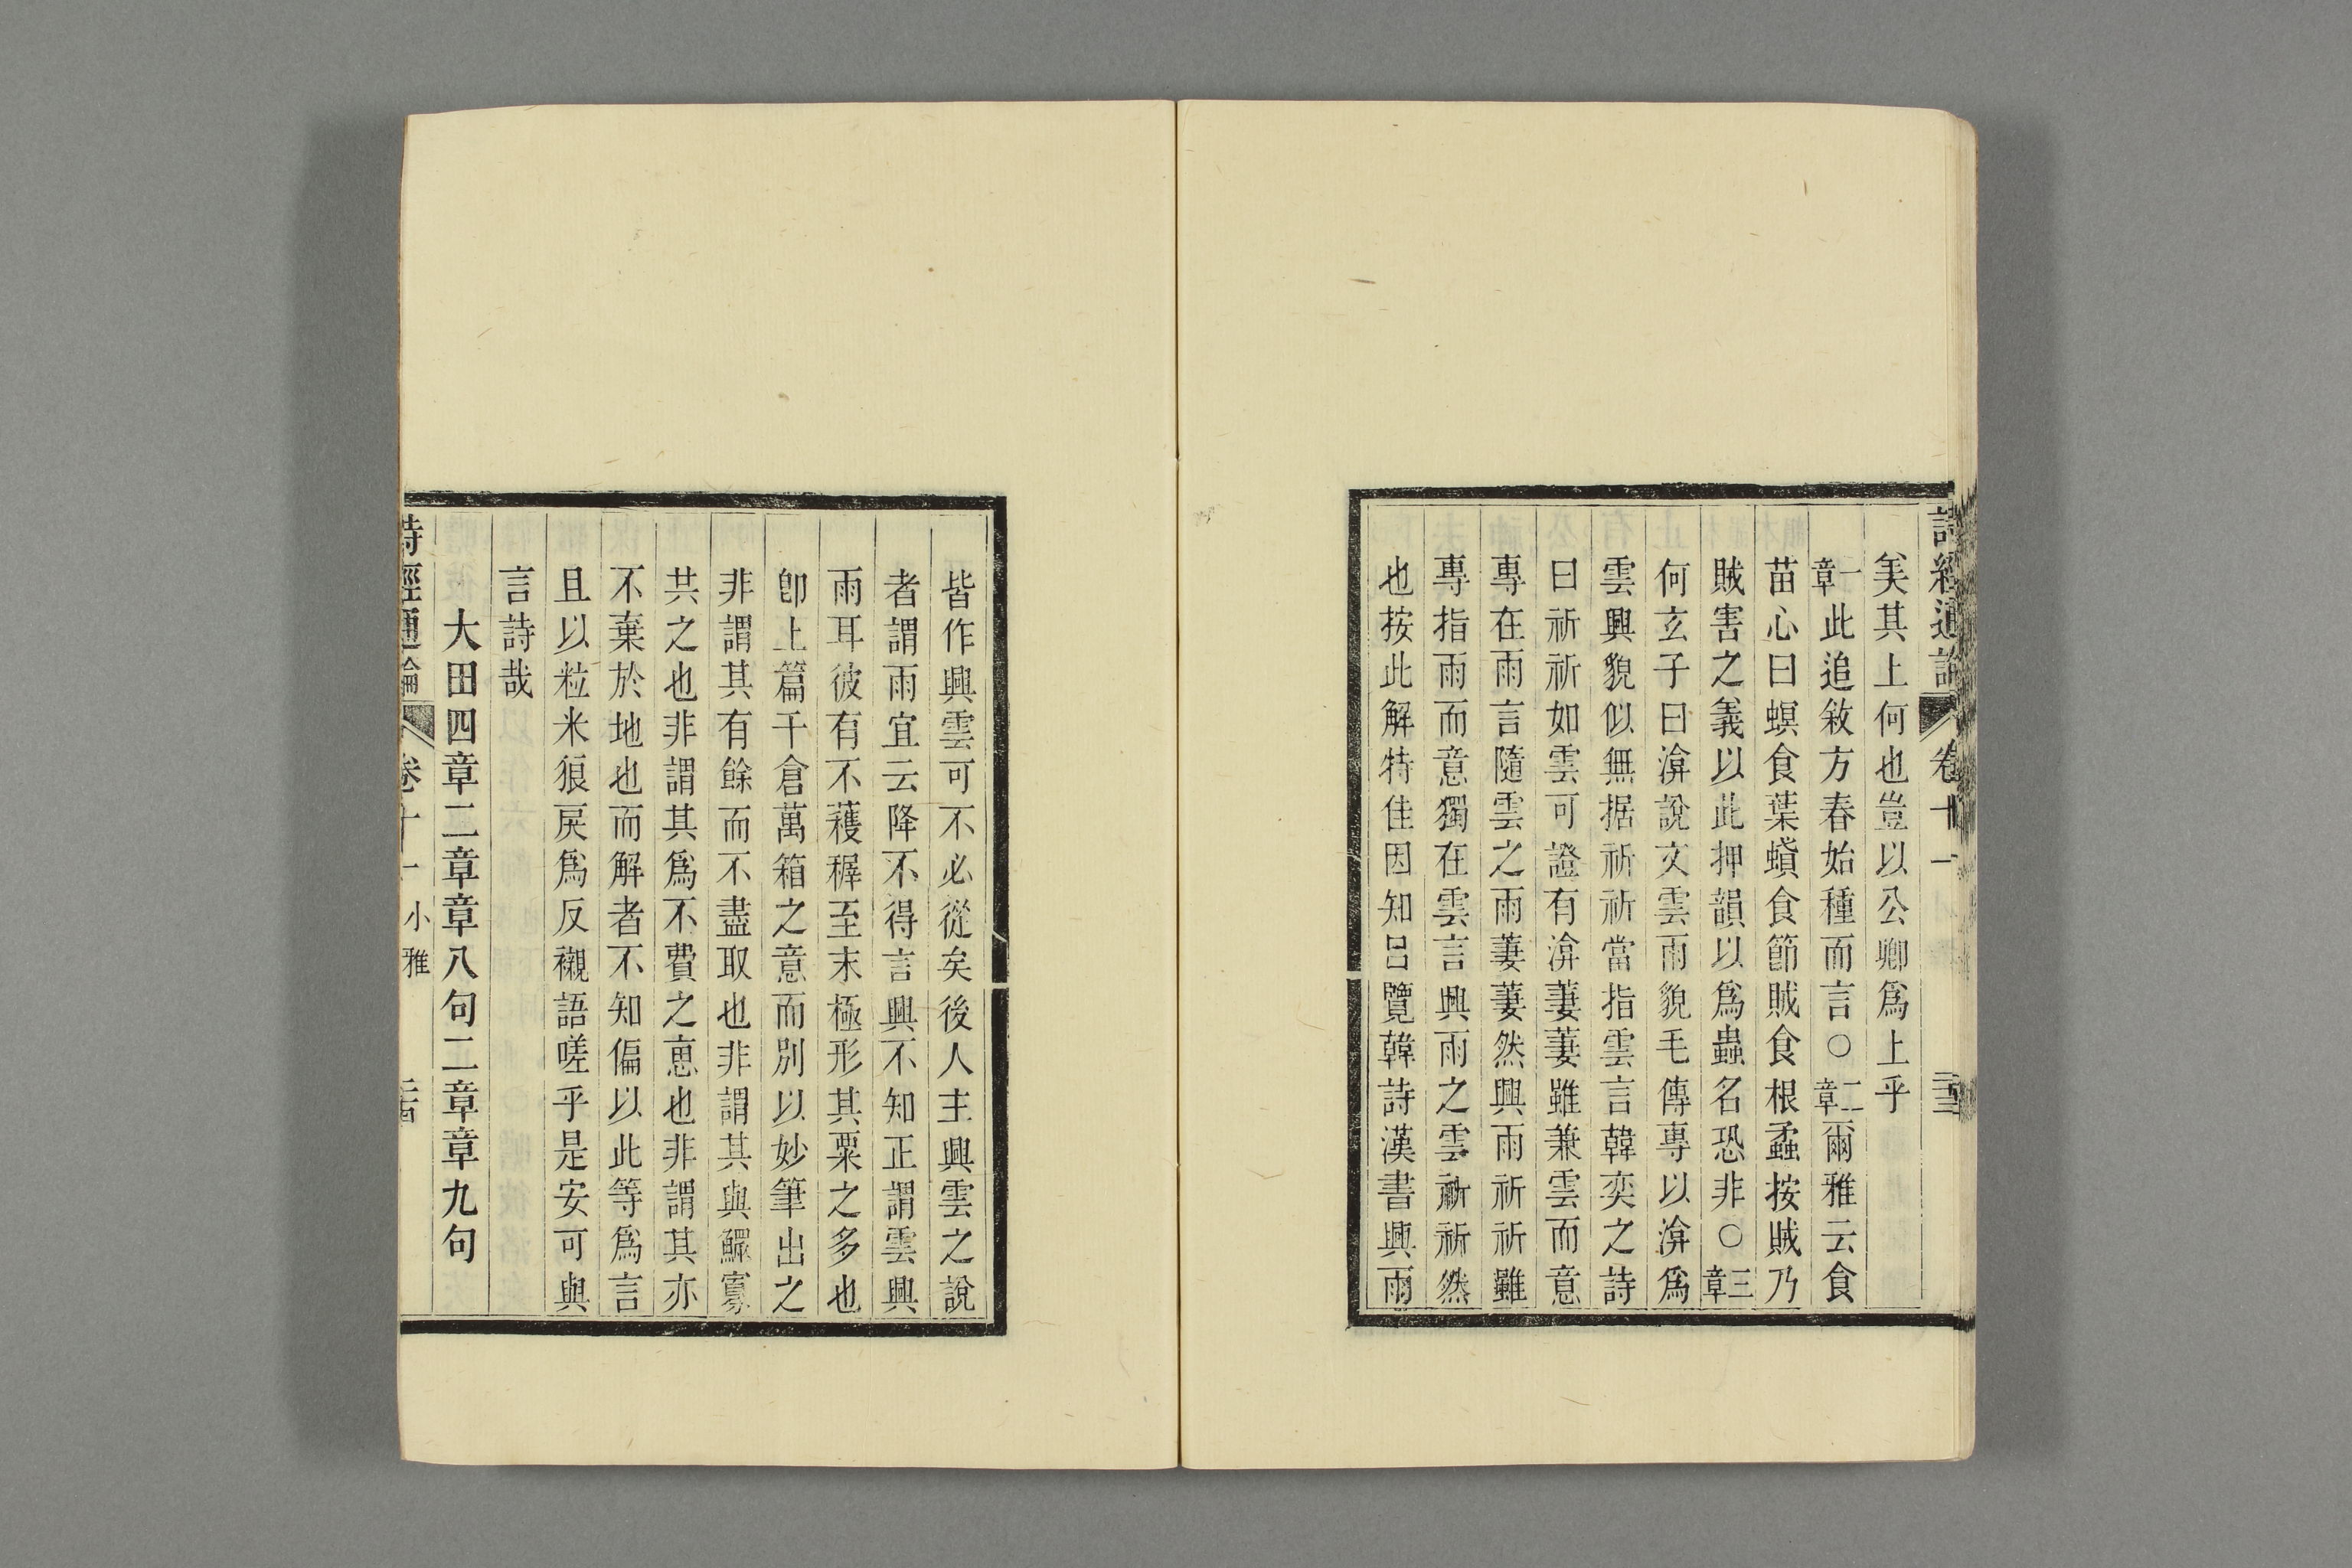 詩經通論 卷十一 三三
矣其上何也豈以公卿爲上乎
一章此追敘方春始種而言○二章爾雅云食
苗心曰螟食葉蟘食節賊食根蟊按賊乃
賊害之義以此押韻以爲蟲名恐非○三章
何玄子曰渰說文雲雨貌毛傳專以渰爲
雲興貌似無据祈祈當指雲言韓奕之詩
曰祈祈如雲可證有渰萋萋雖兼雲而意
專在雨言隨雲之雨萋萋然興雨祈祈雖
專指雨而意獨在雲言興雨之雲祈祈然
也按此解特佳因知呂覽韓詩漢書興雨
皆作興雲可不必從矣後人主興雲之說
者謂雨宜云降不得言興不知正謂雲興
雨耳彼有不穫穉至末極形其粟之多也
卽上篇千倉萬箱之意而別以妙筆出之
非謂其有餘而不盡取也非謂其與鰥寡
共之也非謂其爲不費之惠也非謂其亦
不棄於地也而解者不知偏以此等爲言
且以粒米狼戾爲反襯語嗟乎是安可與
言詩哉
大田四章二章章八句二章章九句
詩經通論 卷十一 小雅 三四